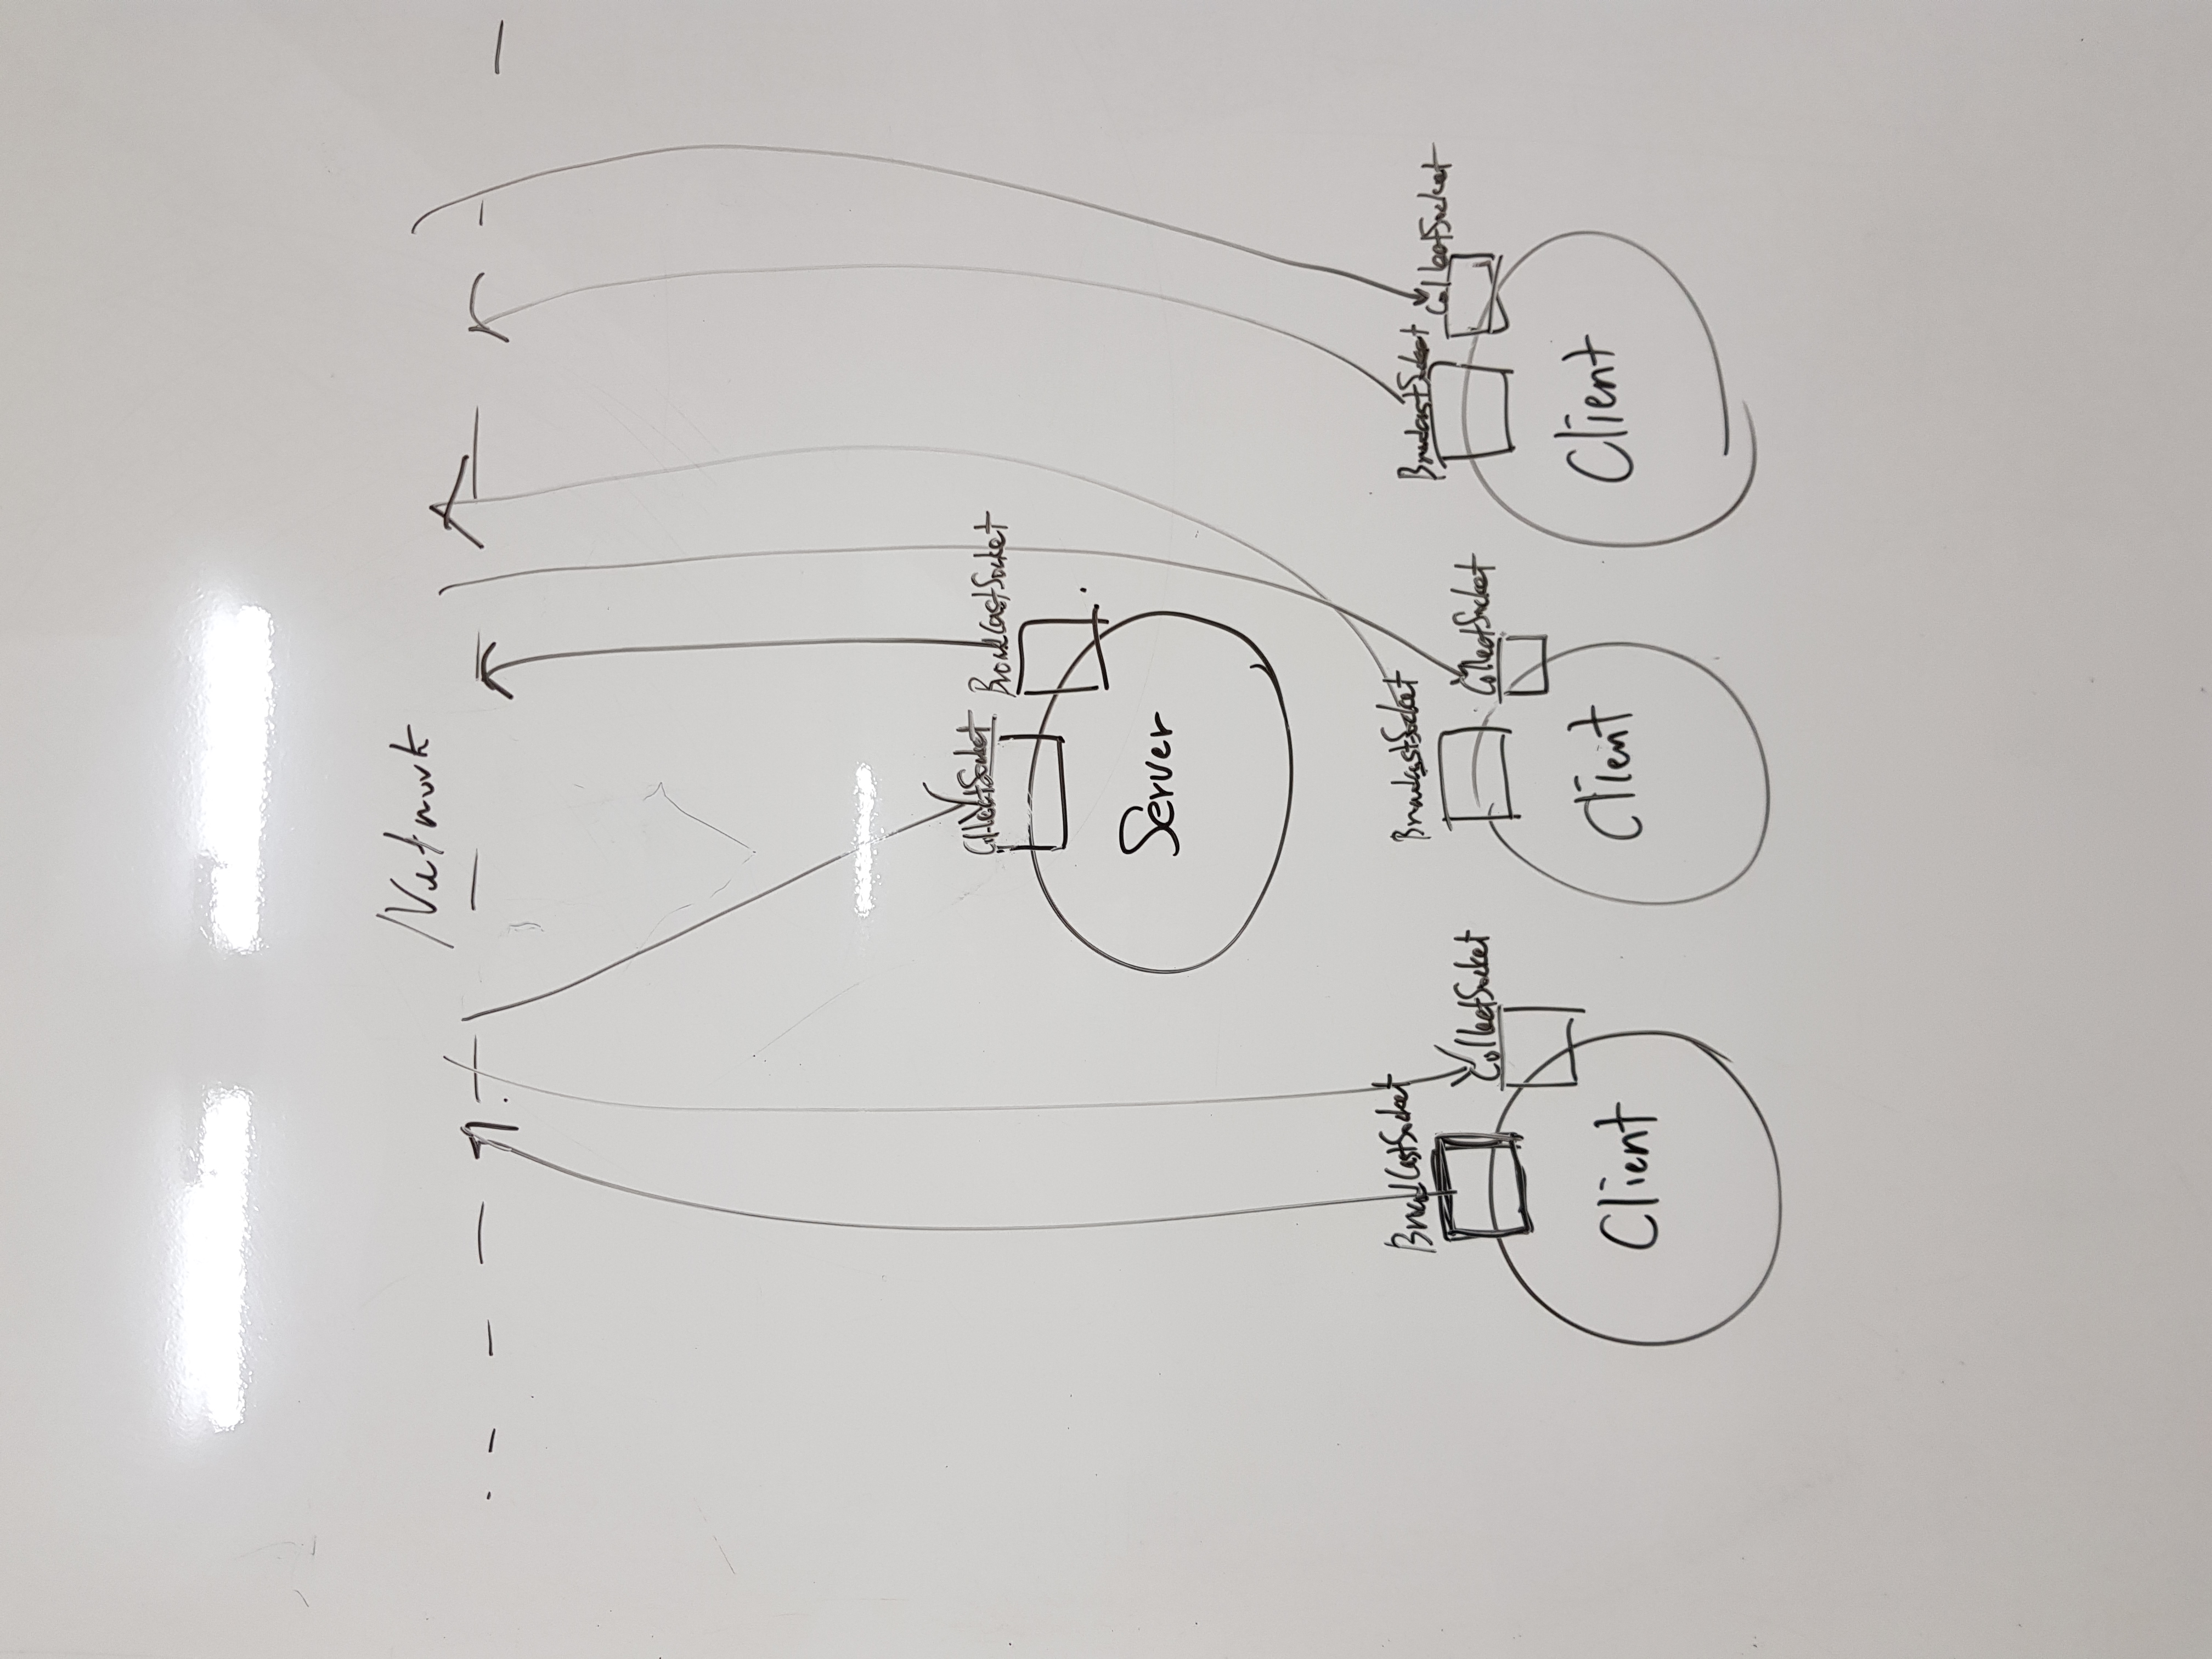 Network
CollectSocket
BroadCastSocket
Server
BroadCastSocket
CollectSocket
Client
BroadcastSocket
CollectSocket
Client
BroadcastSocket
CollectSocket
Client